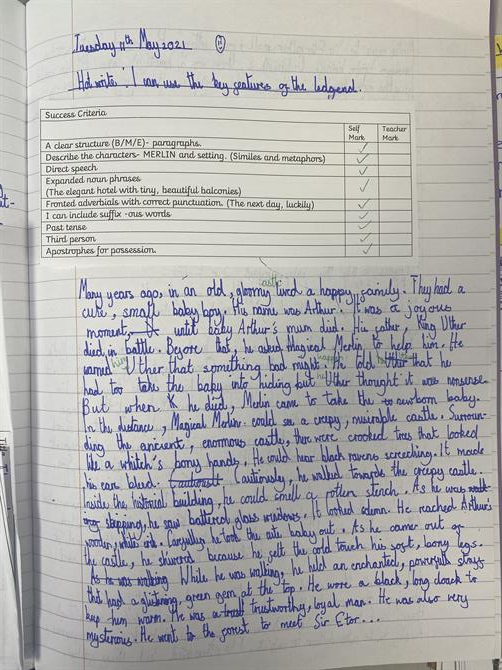 Tuesday 11th May 2021
Hot write: I can use the key features of the ledgend.
Success Criteria
Self Mark
Teacher Mark
A clear structure (B/M/E)- paragraphs.
Describe the characters- MERLIN and setting. (Similes and metaphors)
Direct speech
Expanded noun phrases
(The elegant hotel with tiny, beautiful balconies)
Fronted adverbials with correct punctuation. (The next day, luckily)
I can include suffix -ous words
Past tense
Third person
Apostrophes for possession.
Many years ago, in an old, gloomy castle lived a happy family. They had a
cute, small baby boy. His name was Arthur. It was a joyous
moment, until baby Arthur's mum died. His father, King Uther
died in battle. Before that, he asked magical Merlin to help him. He
warned Uther that something bad might happen. He told Uther that he
had too take the baby into hiding but Uther thought it was nonsense.
But when he died, Merlin came to take the newborn baby.
In the distance, Magical Merlin could see a creepy, miserable castle. Surroun-
ding the ancient, enormous castle, there were crooked trees that looked
like a whitch's bony hands. He could hear black ravens screeching. It made
his ears bleed. Cautiously, he walked towards the creepy castle.
Inside the historical building, he could smell a rotten stench. As he was
stepping, he saw battered, glass windows. It looked solemn. He reached Arthur's
wooden, white crib. Carefully, he took the cute baby out. As he camer out of
the castle, he shivered because he felt the cold touch his soft, bony legs.
As he was walking While he was walking, he held an enchanted, powerful staff
that had a glistening, green gem at the top. He wore a black, long cloack to
keep him warm. He was a trustworthy, loyal man. He was also very
mysterious. He went to the forest to meet Sir Ector...